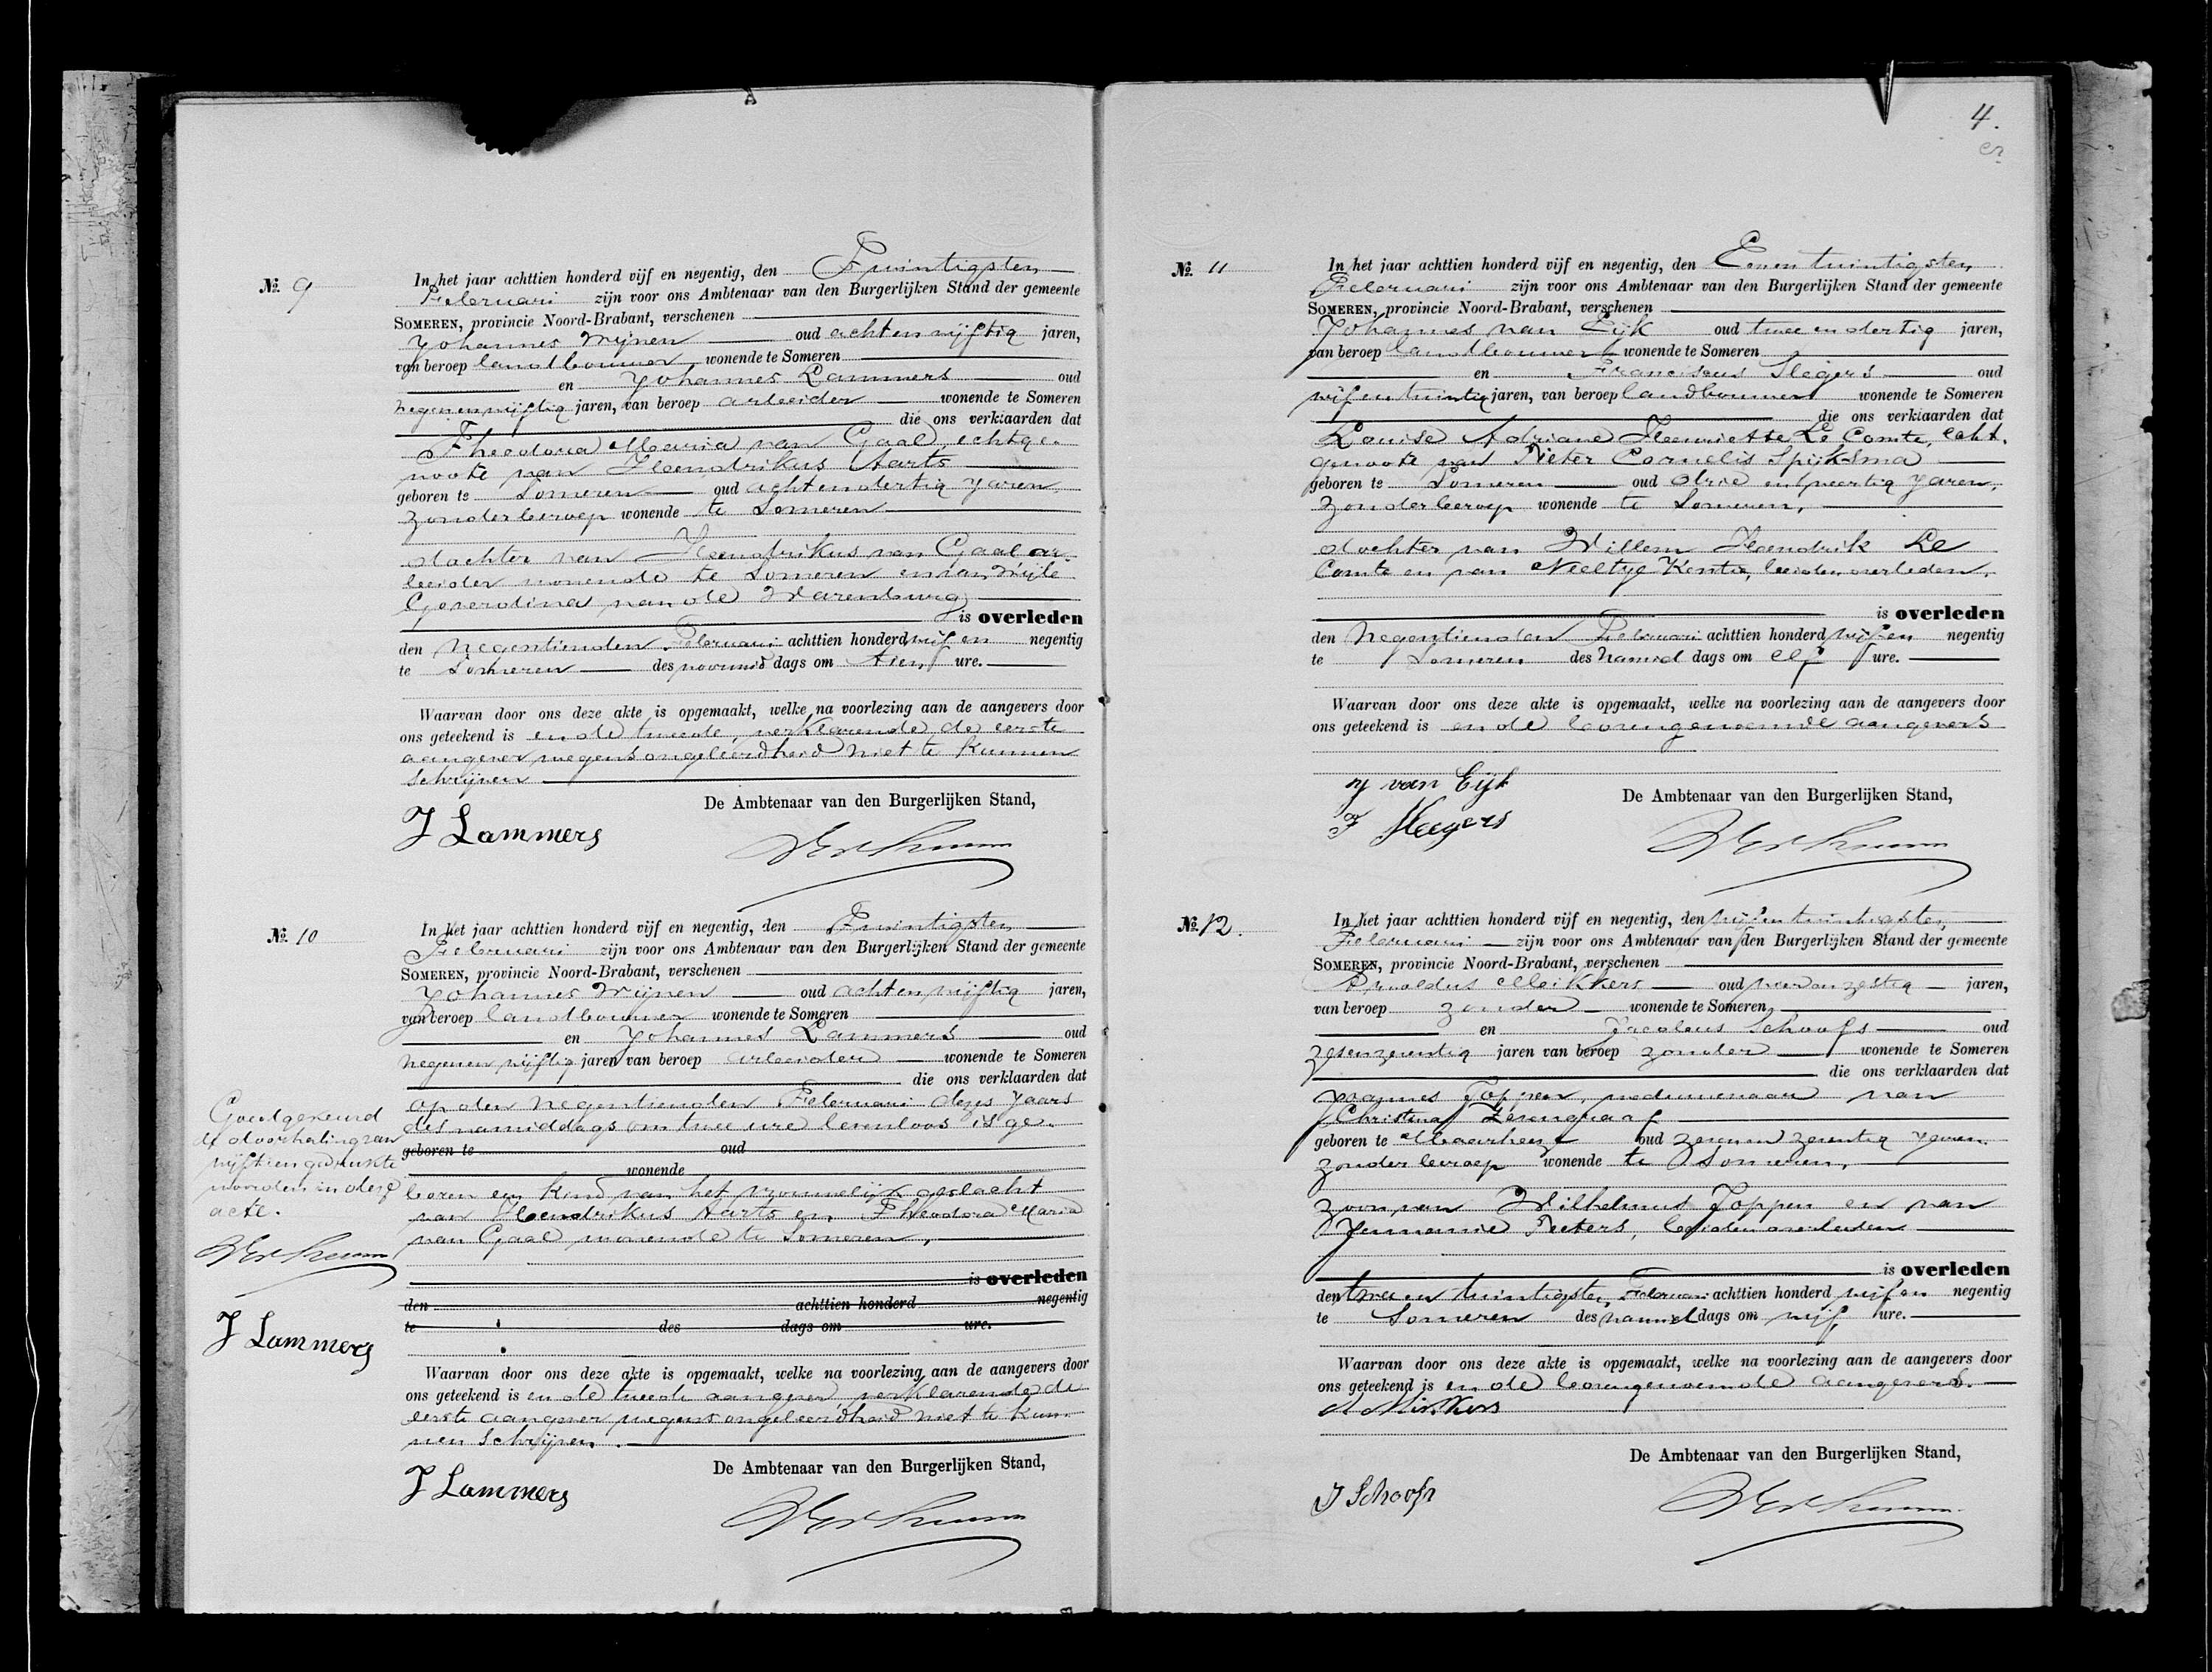 No. 9
In het jaar achttien honderd vijf en negentig, den Twintigsten
Februari zijn voor ons Ambtenaar van den Burgerlijken Stand der gemeente
SOMEREN, provincie Noord-Brabant, verschenen
Johannes Wijnen oud achtenvijftig jaren,
van beroep landbouwer wonende te Someren
en Johannes Lammers oud
negenenvijftig jaren, van beroep arbeider wonende te Someren
die ons verklaarden dat
Theodora Maria van Gaal, echtge-
noote van Hendrikus Aarts
geboren te Someren oud achtendertig jaren,
zonder beroep wonende te Someren
dochter van Hendrikus van Gaal ar-
beider wonende te Someren en van wijle
Geverdina van de Warenburg
is overleden
den negentienden Februari achttien honderd vijf en negentig
te Someren des voormid dags om tien ure.
Waarvan door ons deze akte is opgemaakt, welke na voorlezing aan de aangevers door
ons geteekend is en de tweede, verklarende de eerste
aangever wegens ongeleerdheid niet te kunnen
schrijven
De Ambtenaar van den Burgerlijken Stand,
J Lammers
No. 10
In het jaar achttien honderd vijf en negentig, den Twintigsten
Februari zijn voor ons Ambtenaar van den Burgerlijken Stand der gemeente
SOMEREN, provincie Noord-Brabant, verschenen
Johannes Wijnen oud achtenvijftig jaren,
van beroep landbouwer wonende te Someren
en Johannes Lammers oud
negenenvijftig jaren van beroep arbeider wonende te Someren
die ons verklaarden dat
op den negentienden Februari dezes jaars
des namiddags om twee ure levenloos is ge-
geboren te oud
wonende
boren een kind van het vrouwelijk geslacht
van Hendrikus Aarts en Theodora Maria
van Gaal wonende te Someren,
is overleden
den achttien honderd negentig
te des dags om ure.
Waarvan door ons deze akte is opgemaakt, welke na voorlezing aan de aangevers door
ons geteekend is en de tweede aangever, verklarende de
eerste aangever wegens ongeleerdheid niet te kun-
nen schrijven.
De Ambtenaar van den Burgerlijken Stand,
J Lammers
Goedgekeurd
de doorhaling van
vijftien gedrukte
woorden in deze
acte.
J Lammers
4.
No. 11
In het jaar achttien honderd vijf en negentig, den Eenentwintigsten
Februari zijn voor ons Ambtenaar van den Burgerlijken Stand der gemeente
SOMEREN, provincie Noord-Brabant, verschenen
Johannes van Eijk oud twee en dertig jaren,
van beroep landbouwer wonende te Someren
en Franciscus Slegers oud
vijfentwintig jaren, van beroep landbouwer wonende te Someren
die ons verklaarden dat
Louise Adriane Henriette Le Comte, echt-
genoote van Pieter Cornelis Spijksma
geboren te Someren oud drie en veertig jaren,
zonder beroep wonende te Someren,
dochter van Willem Hendrik Le
Comte en van Neeltje Kentie, beiden overleden,
is overleden
den negentienden Februari achttien honderd vijf en negentig
te Someren des namid dags om elf ure.
Waarvan door ons deze akte is opgemaakt, welke na voorlezing aan de aangevers door
ons geteekend is en de bovengenoemde aangevers
J van Eijk
F Slegers
De Ambtenaar van den Burgerlijken Stand,
No. 12.
In het jaar achttien honderd vijf en negentig, den vijfentwintigsten
Februari zijn voor ons Ambtenaar van den Burgerlijken Stand der gemeente
SOMEREN, provincie Noord-Brabant, verschenen
Meikkers oud jaren,
van beroep zonder wonende te Someren
en Jacobus Schoofs oud
zesenzeventig jaren van beroep zonder wonende te Someren
die ons verklaarden dat
Joppen, weduwenaar van
Christina Zevengraaf
geboren te Maarheeze oud zevenenzeventig jaren
zonder beroep wonende te Someren,
zoon van Wilhelmus Joppen en van
Jennemie Peeters, beiden overleden
is overleden
den tweeentwintigsten Februari achttien honderd vijf en negentig
te Someren des namid dags om vijf ure.
Waarvan door ons deze akte is opgemaakt, welke na voorlezing aan de aangevers door
ons geteekend is en de bovengenoemde aangevers.
De Ambtenaar van den Burgerlijken Stand,
J Schoofs